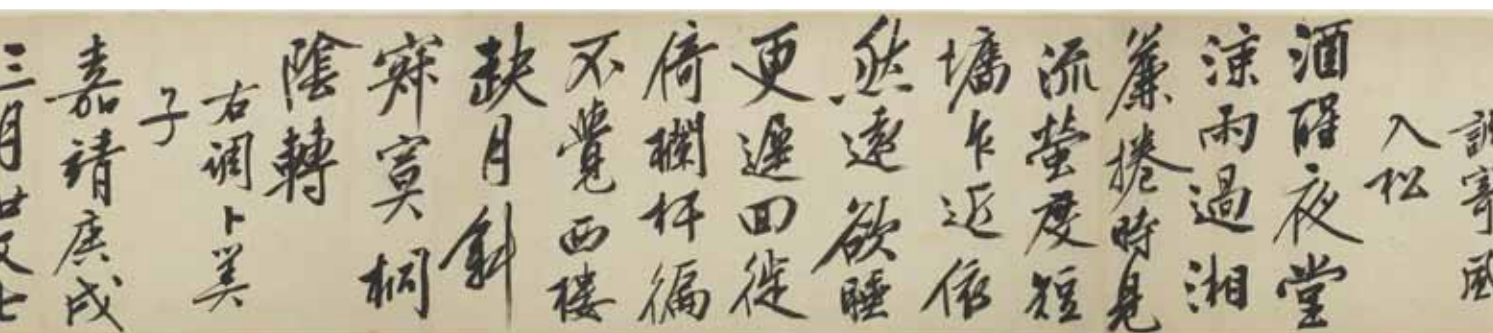 調寄風
入松
酒醒夜堂
涼雨過湘
簾捲時見
流螢度短
墻乍近依
然遠欲睡
更遲回徙
倚欄杆徧
不覺西楼
缺月斜
寂寞桐
陰轉
右調卜算
子
嘉靖庚戌
三月廿又七